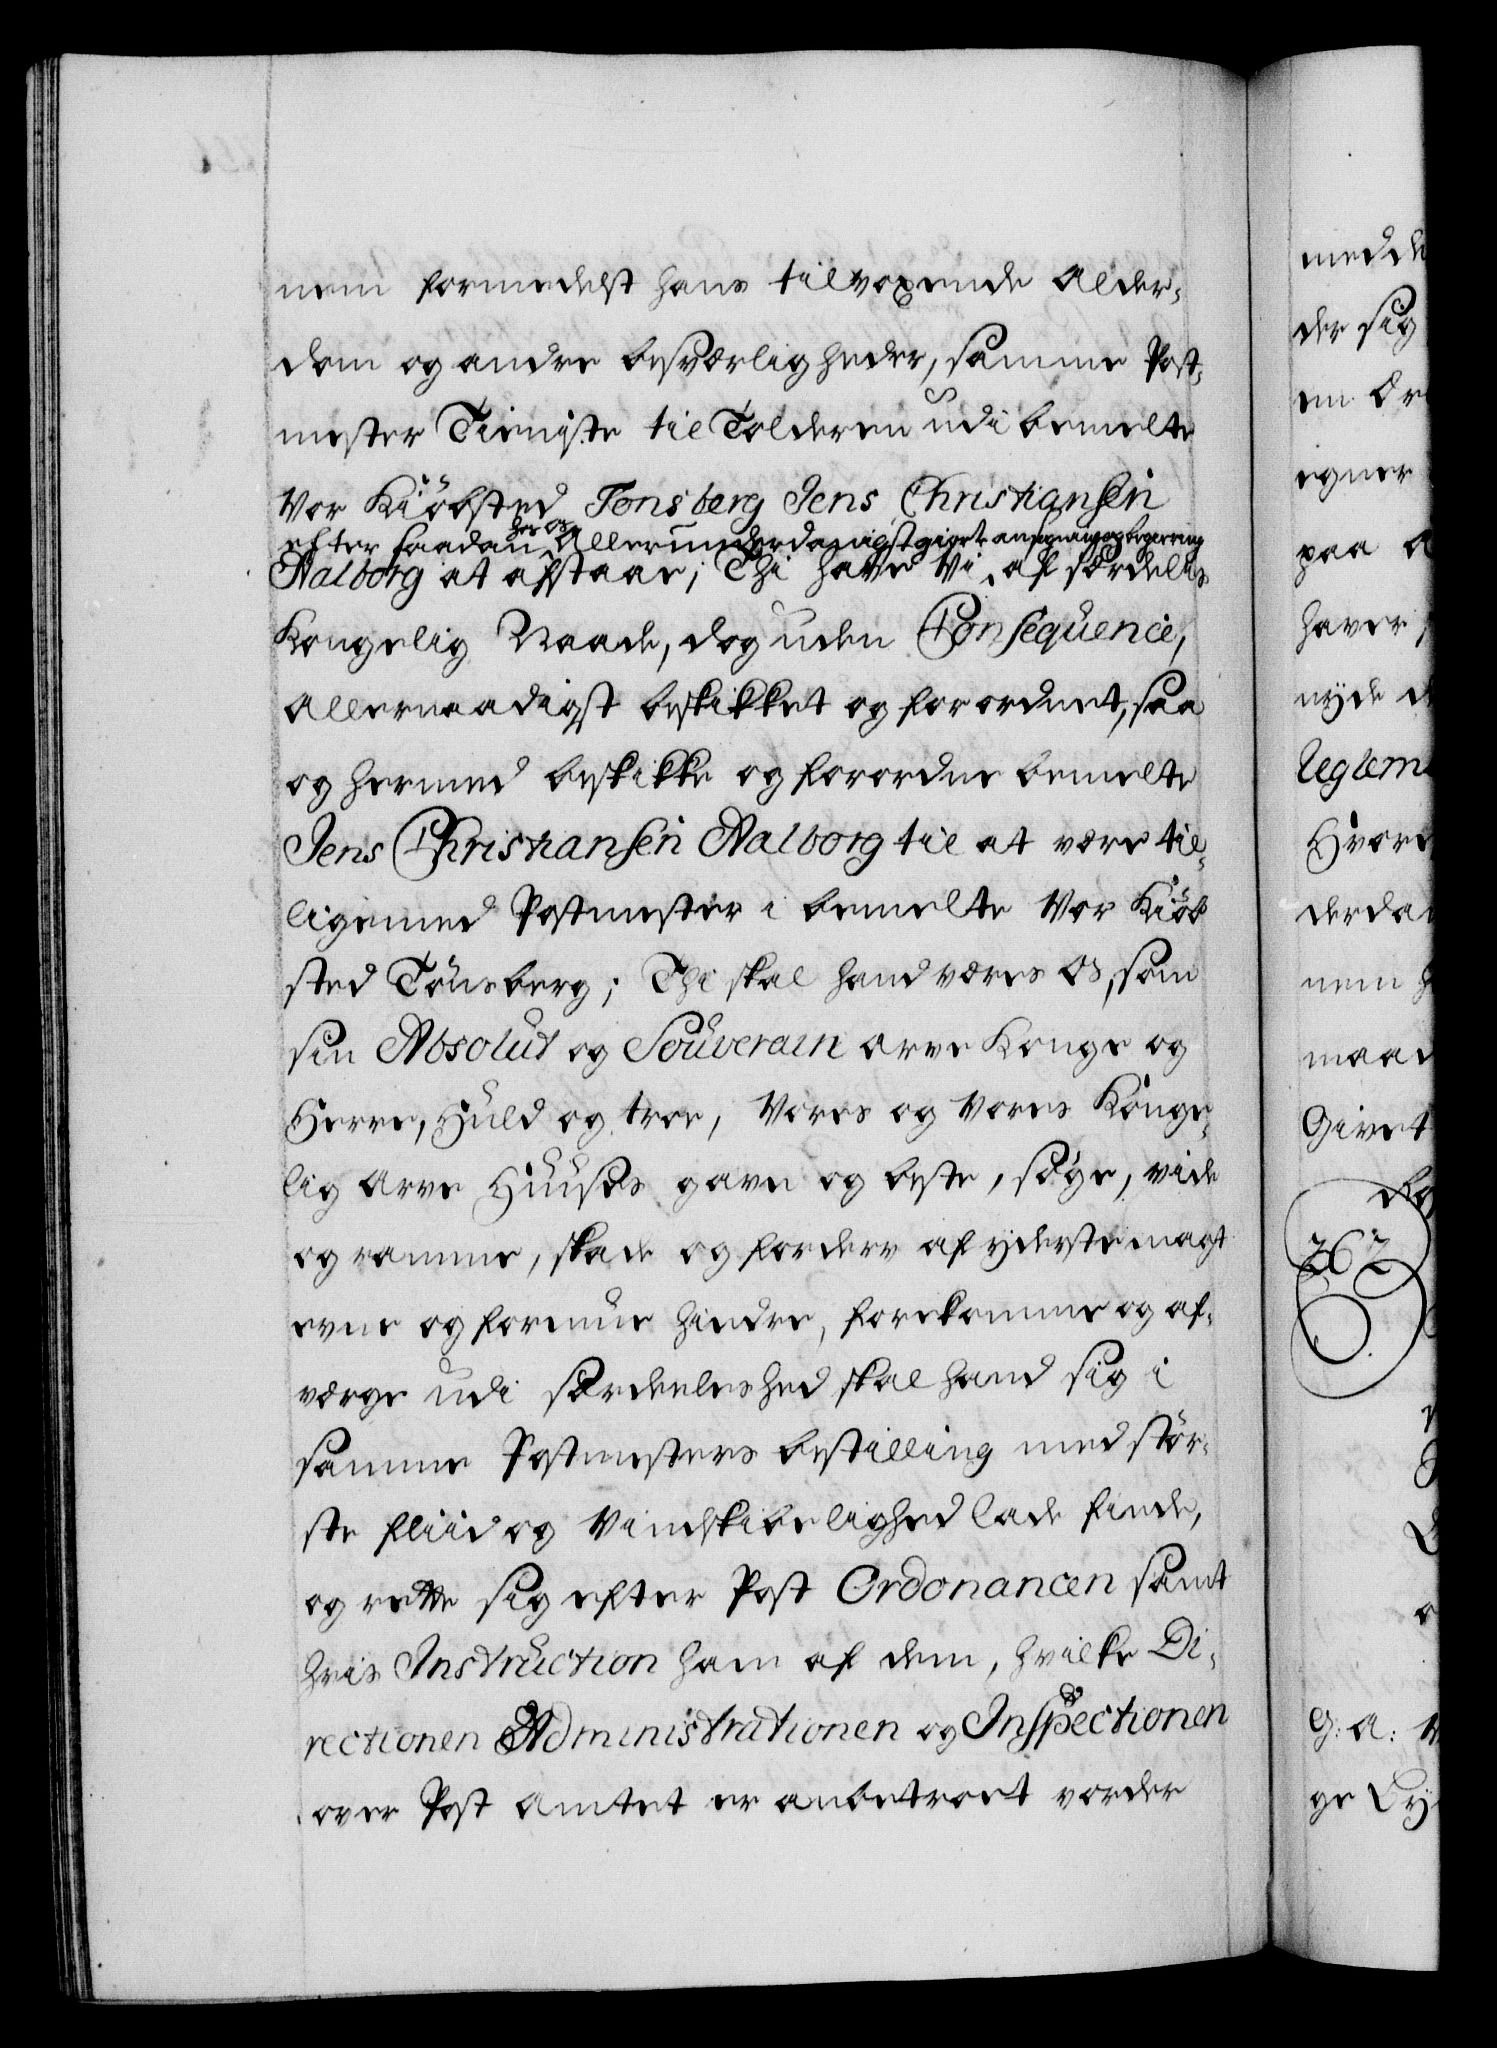 nem formedelst hans tilvoxende Alder-
dom og andre besværligheder, samme Post-
mester Tieniste til Tolderen udi bemelte
Vor Kiöbsted Tonsberg Jens Christiansen
efter saadan hos os Allerunderdanigst giort ansøgning og begiering
Aalborg at afstaae; Thi have Vi af særdeles
Kongelig Naade, dog uden Consequence,
allernaadigst beskikket og forordnet, saa
og hermed beskikke og forordne bemelte
Jens Christiansen Aalborg til at være til-
ligemed Postmester i bemelte Vor Kiöb
sted Tönsberg; Thi skal hand være Os, som
sin Absolut og Souverain arve Konge og
Herre, Huld og troe, Vores og Vores Konge-
lig Arve Huuses gavn og beste, søge, vide
og ramme, skade og forderv af yderste magt
evne og formue hindre, forekomme og af-
værge udi særdeeleshed skal hand sig i
samme Postmesters bestilling med stör-
ste fliid og Vindskibelighed lade finde,
og rette sig efter Post Ordonancen samt
hvis Instruction ham af dem, hvilke Di-
rectionen Administrationen og Inspectionen
over Post Amtet er anbetroet vorder
medde
der sig
em
egner
paa
haver
nyde
Reglem
Hvore
derda
nem
maad
Givet
262
G: A: V
ge By